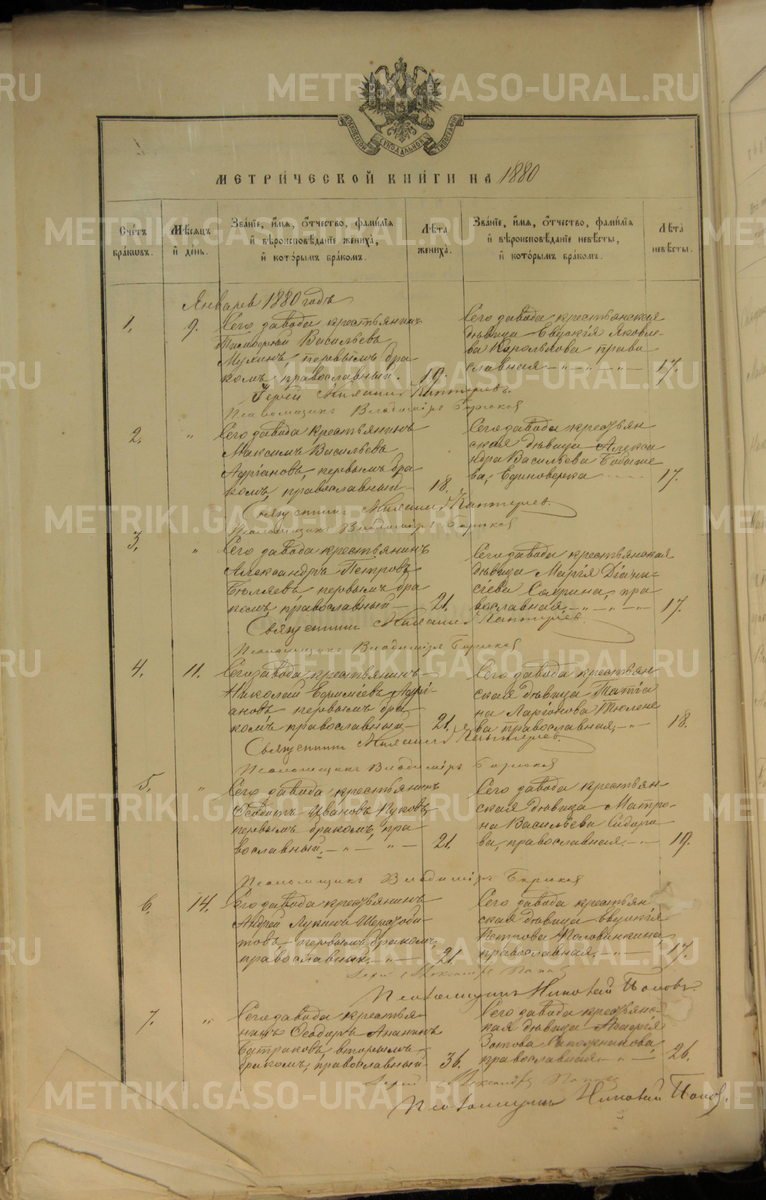 МЕТРИЧЕСКОЙ КНИГИ НА 1880
Счетъ браковъ.
Мѣсяцъ и день.
Званіе, имя, отчество, фамилія
и вѣроисповѣданіе жениха,
и которымъ бракомъ.
Лѣта жениха.
Званіе, имя, отчество, фамилія
и вѣроисповѣданіе невѣсты,
и которымъ бракомъ.
Лѣта невѣсты.
Январь 1880 годъ
1. 9. Сего завода крестьянинъ
Васильевъ
Мухинъ, первымъ бра-
комъ, православный. 19.
Сего завода крестьянская
дѣвица Евдокія Яковле-
ва Королькова право-
славная 17.
Іерей
Псаломщикъ Владиміръ
2. " Сего завода крестьянинъ
Максимъ Васильевъ
Адріановъ, первымъ бра-
комъ, православный 18.
Сего завода крестьян-
ская дѣвица Алекса-
ндра Васильева
ва, Единовѣрка 17.
Священникъ
Псаломщикъ Владиміръ
3. " Сего завода крестьянинъ
Александръ Петровъ
Бѣляевъ первымъ бра-
комъ, православный 21.
Сего завода крестьянская
дѣвица Марія Діони-
сіева пра-
вославная 17.
Священникъ
Псаломщикъ Владиміръ
4. 11. Сего завода крестьянинъ
Николай Адрі-
ановъ первымъ бра-
комъ православный 21.
Сего завода крестьян-
ская дѣвица Татіа-
на Ларіонова Тюлене-
ва православная 18.
Священникъ
Псаломщикъ Владиміръ
5. " Сего завода крестьянинъ
Ивановъ
первымъ бракомъ, пра-
вославный 21.
Сего завода крестьян-
ская дѣвица Матро-
на Васильева Сидоро-
ва, православная 19.
Псаломщикъ Владиміръ
6. 14. Сего завода крестьянинъ
Андрей Лукинъ
первымъ бракомъ,
православный 21
Сего завода крестьян-
ская дѣвица Евдокія
Петрова Половинкина
православная 17.
Іерей Александръ Поповъ
Псаломщикъ Николай Поповъ
7. " Сего завода крестья-
нинъ Ѳеодоръ Ананьинъ
Батраковъ, вторымъ
бракомъ, православный 36.
Сего завода крестьян-
ская дѣвица
православная 26.
Іерей Александръ Поповъ
Псаломщикъ Николай Поповъ
METRIKI.GASO-URAL.RU